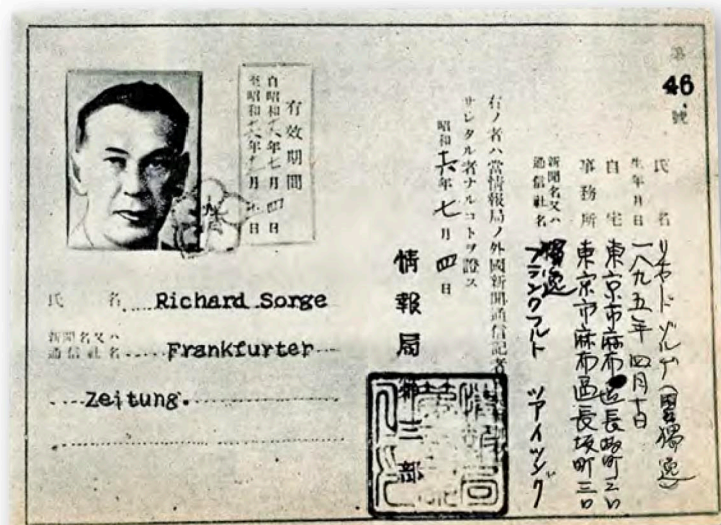 第
46.
號
氏名 リヒヤド ゾルゲ (国 獨逸)
生年月日 一八九五年 四月十日
自宅 東京市麻布區長坂町三〇
事務所 東京市麻布區長坂町三〇
新聞名又ハ
通信社名
獨逸
フランクフルト ツアイツング
右ノ者ハ當情報局ノ外國新聞通信記者
サレタル者ナルコトヲ證ス
昭和 十六年 七月 四日
情報局第三部
有效期間
自昭和十六年七月四日
至昭和十六年
氏名 Richard Sorge
新聞名又ハ
通信社名 Frankfurter
Zeitung.